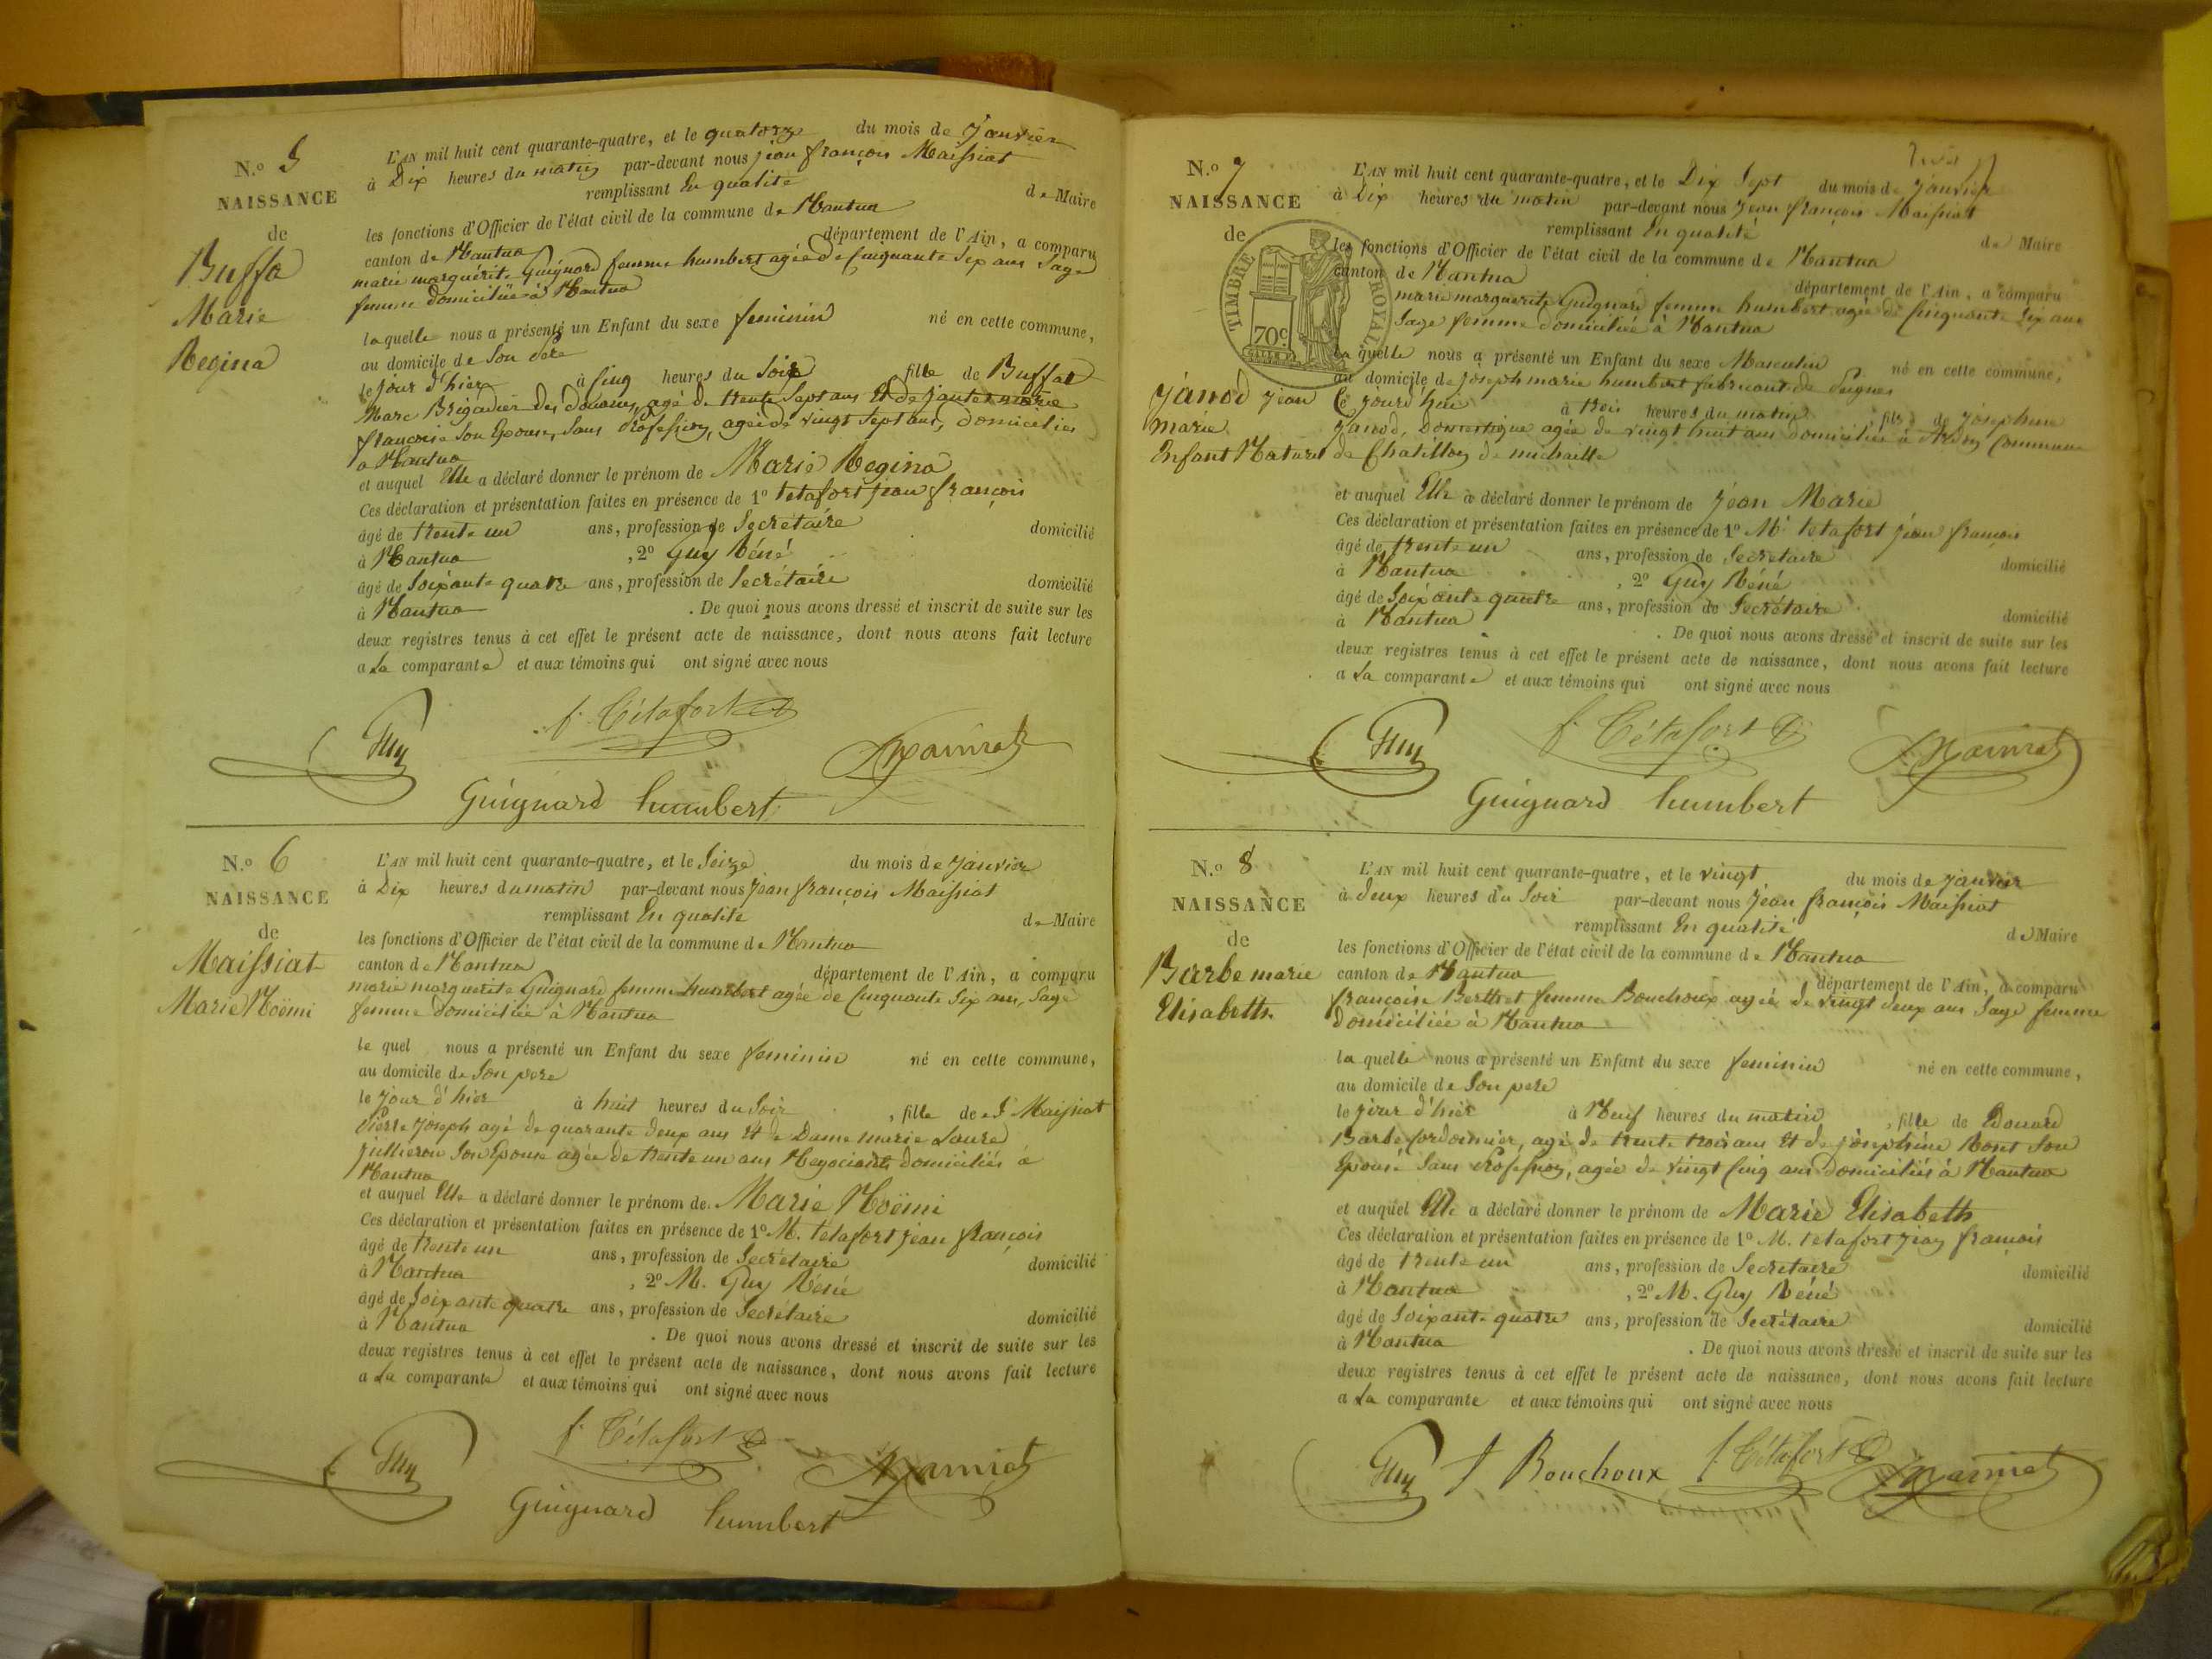 N.o 5
NAISSANCE
de
Buffa
Marie
Regina
L'AN mil huit cent quarante-quatre, et le quatorze du mois de Janvier
à Dix heures du matin par-devant nous jean françois Maissiat
remplissant En qualité de Maire
les fonctions d'Officier de l'état civil de la commune de Nantua
canton de Nantua département de l'Ain, a comparu
marie marguerite Guignard femme humbert agée de Cinquante Six ans Sage
femme domiciliée à Nantua
laquelle nous a présenté un Enfant du sexe feminin né en cette commune,
au domicile de Son père
le jour d'hier à Cinq heures du Soir fille de Buffat
Marc Brigadier des douanes, agé de trente Sept ans Et de marie
françoise Son Epouse, Sans Profession, agée de vingt Sept ans, domiciliés
à Nantua
et auquel Elle a déclaré donner le prénom de Marie Regina
Ces déclaration et présentation faites en présence de 1o tetafort jean françois
âgé de trente un ans, profession de Secrétaire domicilié
à Nantua , 2o Guy Réné
âgé de Soixante quatre ans, profession de Secrétaire domicilié
à Nantua . De quoi nous avons dressé et inscrit de suite sur les
deux registres tenus à cet effet le présent acte de naissance, dont nous avons fait lecture
a La comparante et aux témoins qui ont signé avec nous
Guy f. Tétafort Maissiat
Guignard humbert
N.o 6
NAISSANCE
de
Maissiat
Marie Noëmi
L'AN mil huit cent quarante-quatre, et le Seize du mois de Janvier
à Dix heures du matin par-devant nous Jean françois Maissiat
remplissant En qualité de Maire
les fonctions d'Officier de l'état civil de la commune de Nantua
canton de Nantua département de l'Ain, a comparu
marie marguerite Guignard femme humbert agée de Cinquante Six ans, Sage
femme domiciliée à Nantua
le quel nous a présenté un Enfant du sexe feminin né en cette commune,
au domicile de Son pere
le jour d'hier à huit heures du Soir , fille de Maissiat
Pierre Joseph agé de quarante deux ans Et de Dame marie Laure
jullieron Son Epouse agée de trente un ans Negociants domiciliés à
Nantua
et auquel Elle a déclaré donner le prénom de Marie Noëmi
Ces déclaration et présentation faites en présence de 1o M. tetafort jean françois
âgé de trente un ans, profession de Secrétaire domicilié
à Nantua , 2o M. Guy Réné
âgé de Soixante quatre ans, profession de Secrétaire domicilié
à Nantua . De quoi nous avons dressé et inscrit de suite sur les
deux registres tenus à cet effet le présent acte de naissance, dont nous avons fait lecture
a La comparante et aux témoins qui ont signé avec nous
Guy f. Tétafort Maissiat
Guignard humbert
N.o 7
NAISSANCE
de
TIMBRE ROYAL
70c
janod jean
marie
Enfant Naturel
L'AN mil huit cent quarante-quatre, et le Dix Sept du mois de janvier
à Dix heures du matin par-devant nous Jean françois Maissiat
remplissant En qualité de Maire
les fonctions d'Officier de l'état civil de la commune de Nantua
canton de Nantua département de l'Ain, a comparu
marie marguerite Guignard femme humbert agée de Cinquante Six ans
Sage femme domiciliée à Nantua
la quelle nous a présenté un Enfant du sexe Masculin né en cette commune,
au domicile de joseph marie humbert fabricant de Peignes
Ce jourd'hui à trois heures du matin , fils de josephine
Janod, Domestique agée de vingt huit ans domiciliée à Commune
de Chatillon de michaille
et auquel Elle a déclaré donner le prénom de Jean Marie
Ces déclaration et présentation faites en présence de 1o Mr tetafort jean françois
âgé de trente un ans, profession de Secrétaire domicilié
à Nantua , 2o Guy Réné
âgé de Soixante quatre ans, profession de Secrétaire domicilié
à Nantua . De quoi nous avons dressé et inscrit de suite sur les
deux registres tenus à cet effet le présent acte de naissance, dont nous avons fait lecture
a La comparante et aux témoins qui ont signé avec nous
Guy f. Tétafort Maissiat
Guignard humbert
N.o 8
NAISSANCE
de
Barbe marie
Elisabeth
L'AN mil huit cent quarante-quatre, et le vingt du mois de janvier
à deux heures du Soir par-devant nous Jean françois Maissiat
remplissant En qualité de Maire
les fonctions d'Officier de l'état civil de la commune de Nantua
canton de Nantua département de l'Ain, a comparu
françoise Berthet femme Bouchoux agée de vingt deux ans Sage femme
domiciliée à Nantua
la quelle nous a présenté un Enfant du sexe feminin né en cette commune,
au domicile de Son pere
le jour d'hier à Neuf heures du matin , fille de Edouard
Barbe Cordonnier, agé de trente trois ans Et de joséphine Son
Epouse Sans Profession, agée de vingt Cinq ans domiciliés à Nantua
et auquel Elle a déclaré donner le prénom de Marie Elisabeth
Ces déclaration et présentation faites en présence de 1o M. tetafort jean françois
âgé de trente un ans, profession de Secretaire domicilié
à Nantua , 2o M. Guy Réné
âgé de Soixante quatre ans, profession de Secrétaire domicilié
à Nantua . De quoi nous avons dressé et inscrit de suite sur les
deux registres tenus à cet effet le présent acte de naissance, dont nous avons fait lecture
a La comparante et aux témoins qui ont signé avec nous
Guy f Bouchoux f. Tétafort Maissiat